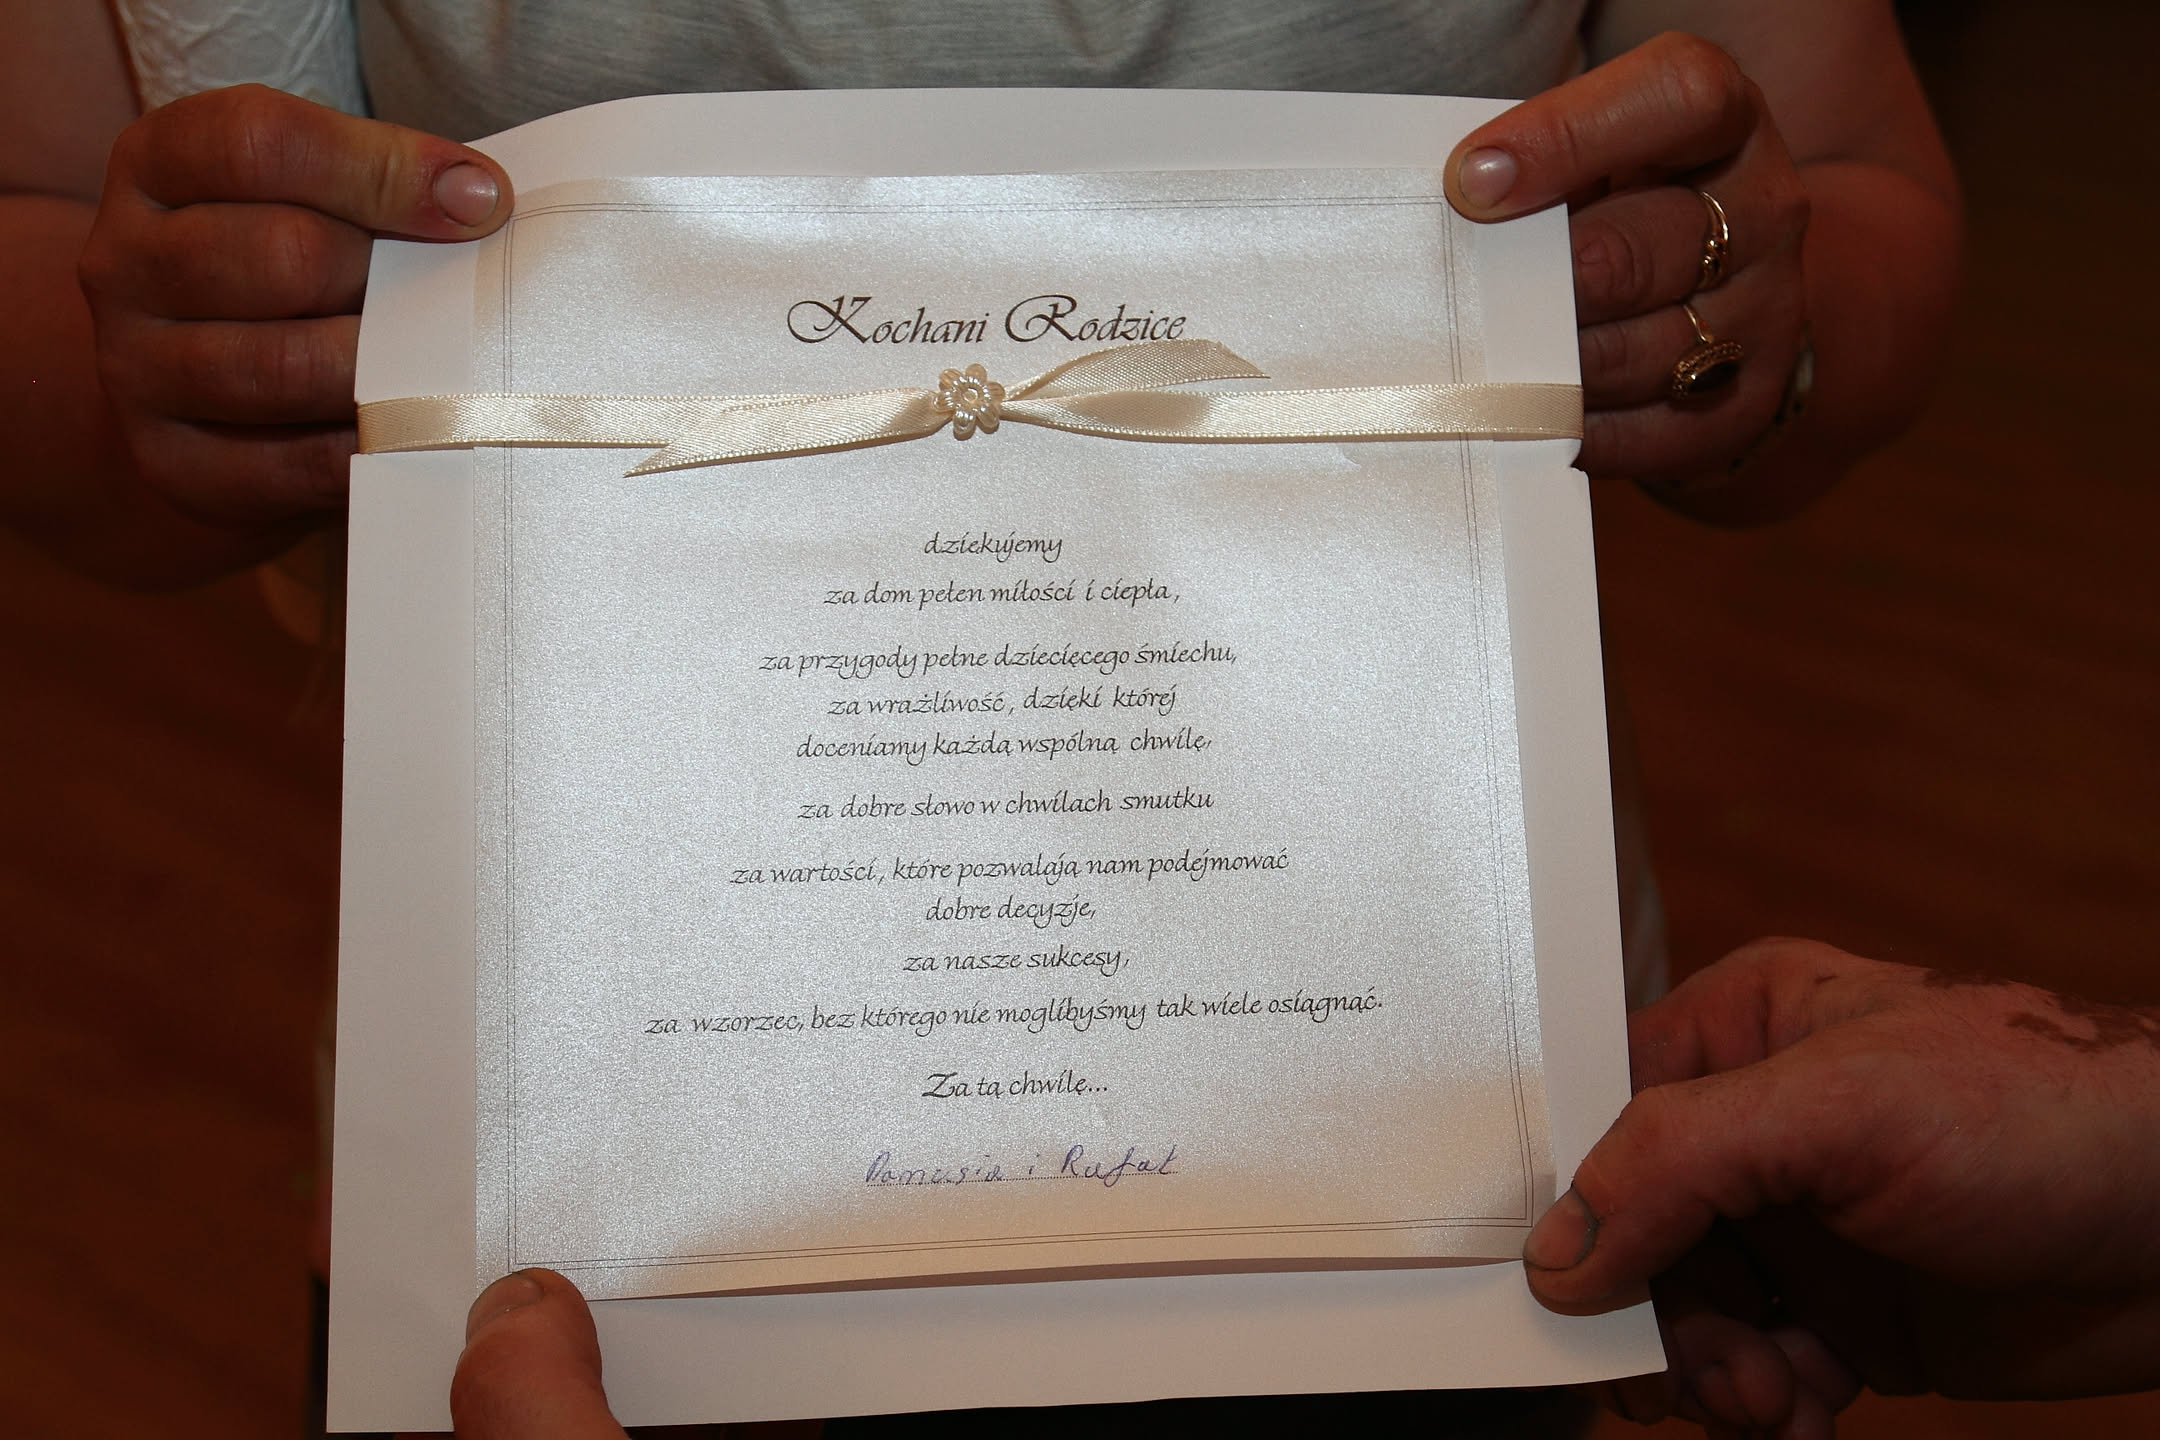 Kochani Rodzice
dziekujemy
za dom pełen miłości i ciepła,
za przygody pełne dziecięcego śmiechu,
za wrażliwość, dzięki której
doceniamy każdą wspólną chwilę,
za dobre słowo w chwilach smutku
za wartości, które pozwalają nam podejmować
dobre decyzje,
za nasze sukcesy,
za wzorzec, bez którego nie moglibyśmy tak wiele osiągnąć.
Za tą chwilę...
i Rafał